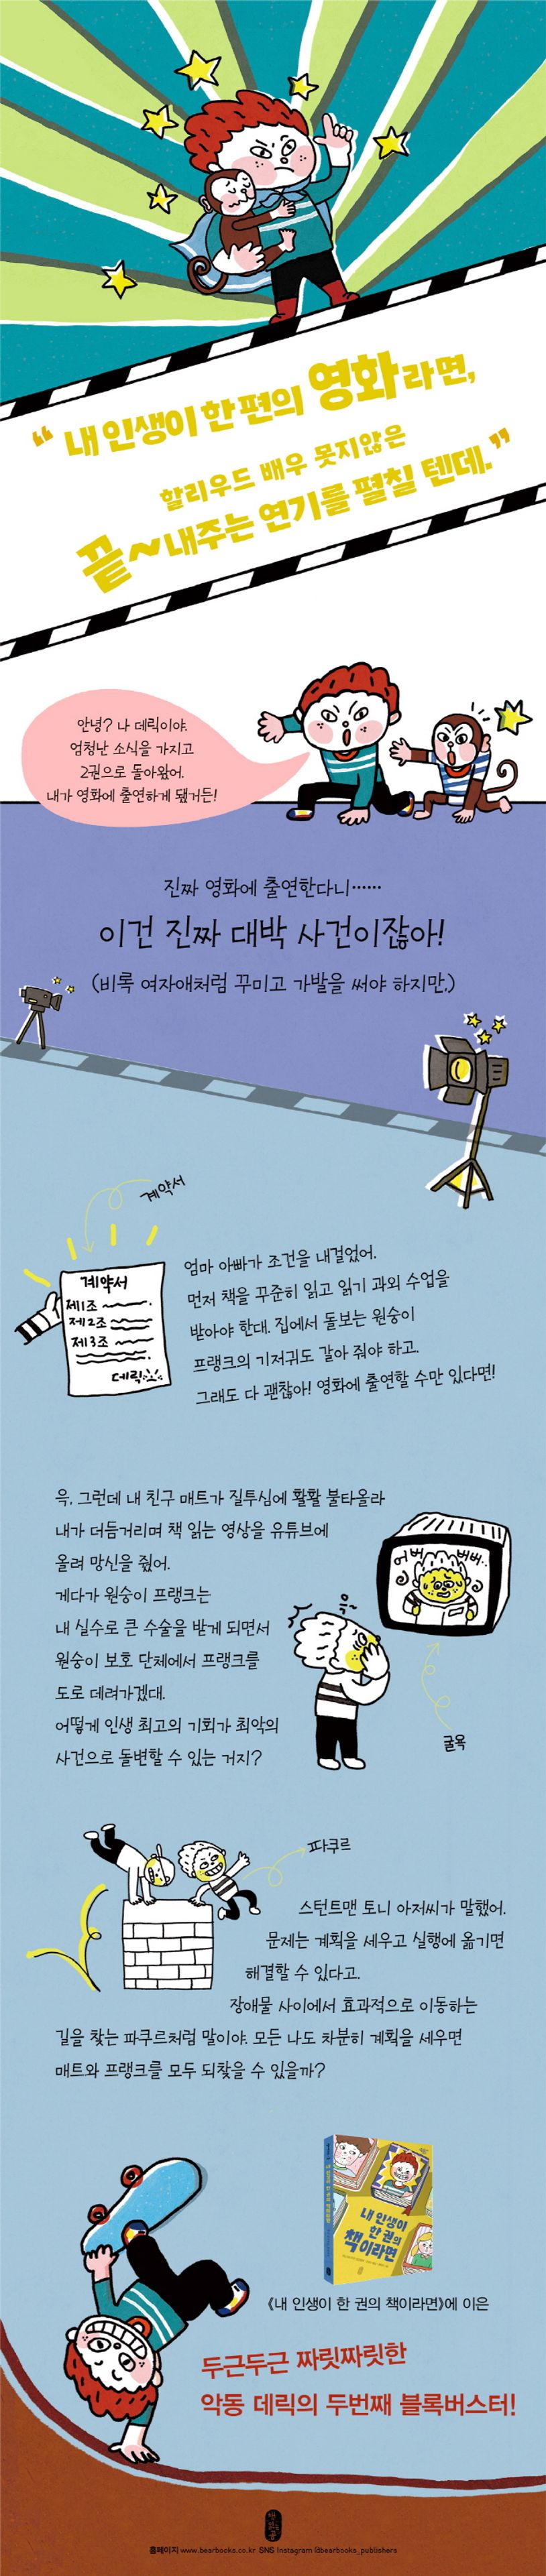 “ 내 인생이 한 편의 영화라면,
할리우드 배우 못지않은
끝~내주는 연기를 펼칠 텐데.”
안녕? 나 데릭이야.
엄청난 소식을 가지고
2권으로 돌아왔어.
내가 영화에 출연하게 됐거든!
진짜 영화에 출연한다니……
이건 진짜 대박 사건이잖아!
(비록 여자애처럼 꾸미고 가발을 써야 하지만.)
계약서
계약서
제1조
제2조
제3조
데릭
엄마 아빠가 조건을 내걸었어.
먼저 책을 꾸준히 읽고 읽기 과외 수업을
받아야 한대. 집에서 돌보는 원숭이
프랭크의 기저귀도 갈아 줘야 하고.
그래도 다 괜찮아! 영화에 출연할 수만 있다면!
윽, 그런데 내 친구 매트가 질투심에 활활 불타올라
내가 더듬거리며 책 읽는 영상을 유튜브에
올려 망신을 줬어.
게다가 원숭이 프랭크는
내 실수로 큰 수술을 받게 되면서
원숭이 보호 단체에서 프랭크를
도로 데려가겠대.
어떻게 인생 최고의 기회가 최악의
사건으로 돌변할 수 있는 거지?
어버 버버..
윽~
굴욕
파쿠르
스턴트맨 토니 아저씨가 말했어.
문제는 계획을 세우고 실행에 옮기면
해결할 수 있다고.
장애물 사이에서 효과적으로 이동하는
길을 찾는 파쿠르처럼 말이야. 모든 나도 차분히 계획을 세우면
매트와 프랭크를 모두 되찾을 수 있을까?
내 인생이
한 권의
책이라면
《내 인생이 한 권의 책이라면》에 이은
두근두근 짜릿짜릿한
악동 데릭의 두번째 블록버스터!
책읽는곰
홈페이지 www.bearbooks.co.kr SNS Instagram @bearbooks_publishers